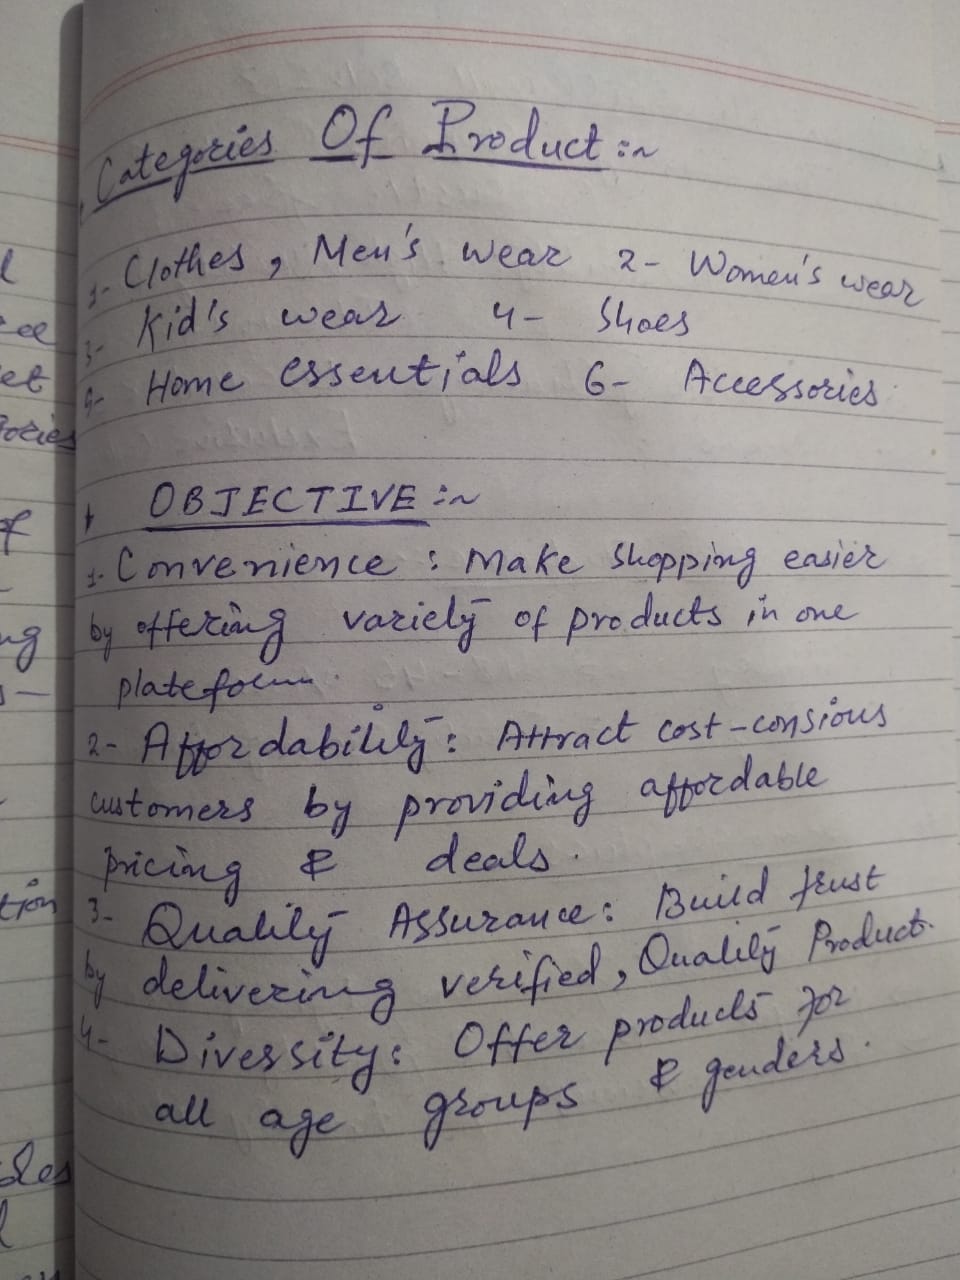 Categories Of Product :~
1- Clothes, Men's wear 2- Women's wear
3- Kid's wear 4- Shoes
5- Home essentials 6- Accessories
OBJECTIVE :~
1- Convenience : Make Shopping easier
by offering variety of products in one
plateform.
2- Affordability : Attract cost-consious
customers by providing affordable
pricing & deals.
3- Quality Assurance : Build trust
by delivering verified, Quality Product.
4- Diversity : Offer products for
all age groups & genders.